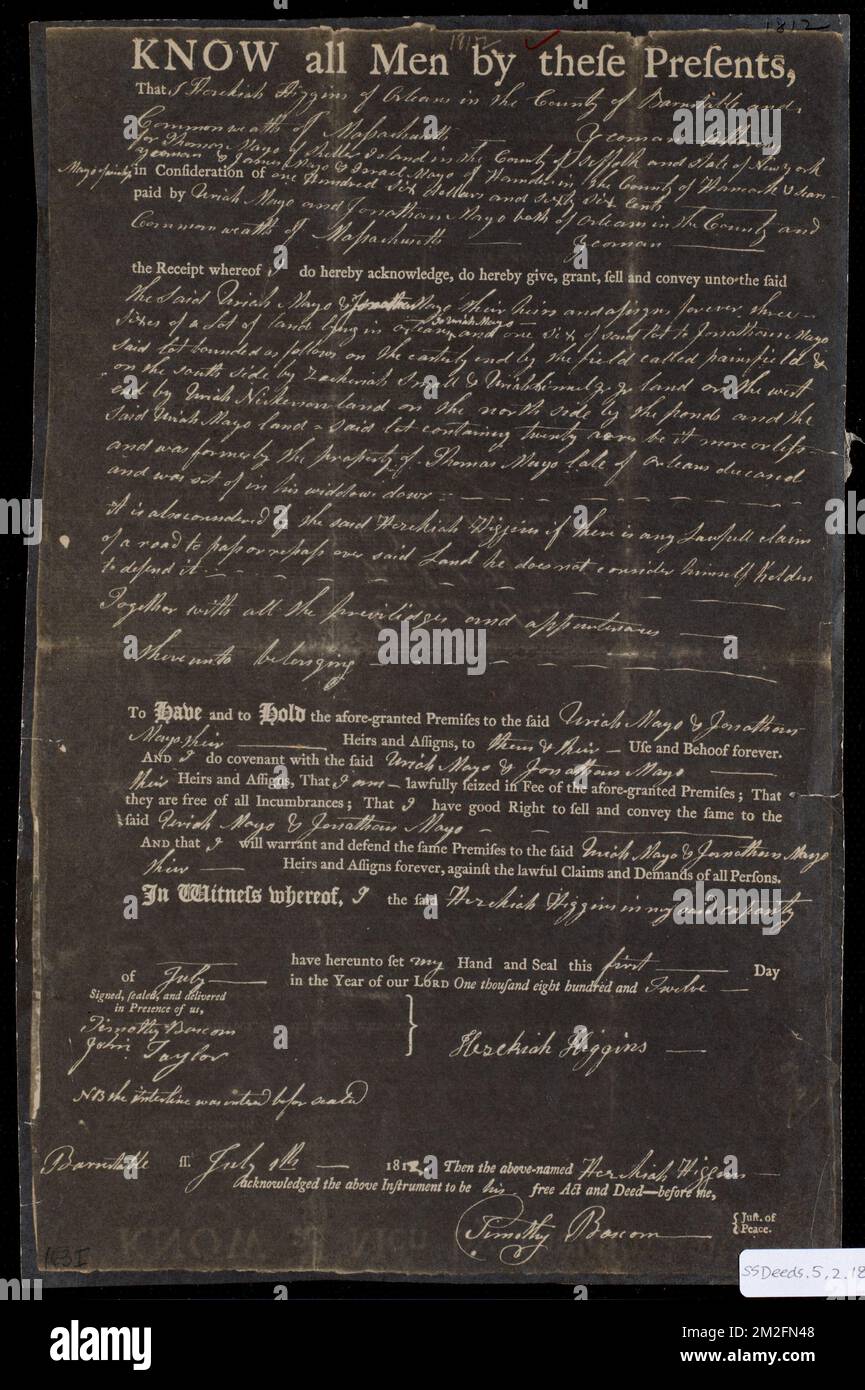 1812
1812
KNOW all Men by theſe Preſents,
That I Hezekiah Higgins of Orleans in the County of Barnstable and
Commonwealth of Massachusetts Yeoman
for Thomas Mayo of Island in the County of Suffolk and State of New York
yeoman & James Mayo & Israel Mayo of Hamden in the County of Hancock &
in Conſideration of one Hundred Six Dollars and sixty six Cents
paid by Uriah Mayo and Jonathan Mayo both of Orleans in the County and
Commonwealth of Massachusetts Yeoman
the Receipt whereof I do hereby acknowledge, do hereby give, grant, ſell and convey unto the ſaid
the said Uriah Mayo & Mayo their heirs and assigns forever three
to Uriah Mayo
sixes of a Lot of land lying in orleans and one six of said Lot to Jonathan Mayo
said lot bounded as follows on the easterly end by the field called painsfield &
on the south side by Zachariah Small & land on the west
end by Uriah Nickerson land on the north side by the ponds and the
said Uriah Mayo land - said lot containing twenty acres be it more or less
and was formerly the property of Thomas Mayo late of Orleans deceased
and was set of in his widdows dower
it is also considered by the said Hezekiah Higgins if there is any Lawfull claim
of a road to pass or repass over said Land he does not consider himself holden
to defend it
Together with all the previlidges and appurtenances
thereunto belonging
To Have and to Hold the afore-granted Premiſes to the ſaid Uriah Mayo & Jonathan
Mayo their Heirs and Aſſigns, to them & their Uſe and Behoof forever.
AND I do covenant with the ſaid Uriah Mayo & Jonathan Mayo
their Heirs and Aſſigns, That I am lawfully ſeized in Fee of the afore-granted Premiſes; That
they are free of all Incumbrances; That I have good Right to ſell and convey the ſame to the
ſaid Uriah Mayo & Jonathan Mayo
AND that I will warrant and defend the ſame Premiſes to the ſaid Uriah Mayo & Jonathan Mayo
their Heirs and Aſſigns forever, againſt the lawful Claims and Demands of all Perſons.
In Witneſs whereof, I the ſaid Hezekiah Higgins in my said capasity
have hereunto ſet my Hand and Seal this first Day
of July in the Year of our LORD One thouſand eight hundred and Twelve
Signed, ſealed, and delivered
in Preſence of us,
Timothy Bascom
John Taylor
Hezekiah Higgins
NB the interline was entered befor sealed
Barnstable ſſ. July 1th 1812 Then the above-named Hezekiah Higgins
acknowledged the above Inſtrument to be his free Act and Deed—before me,
Timothy Bascom {Juſt. of Peace.
163I
SSDeeds.5.2.18
alamy
Image ID: 2M2FN48
www.alamy.com